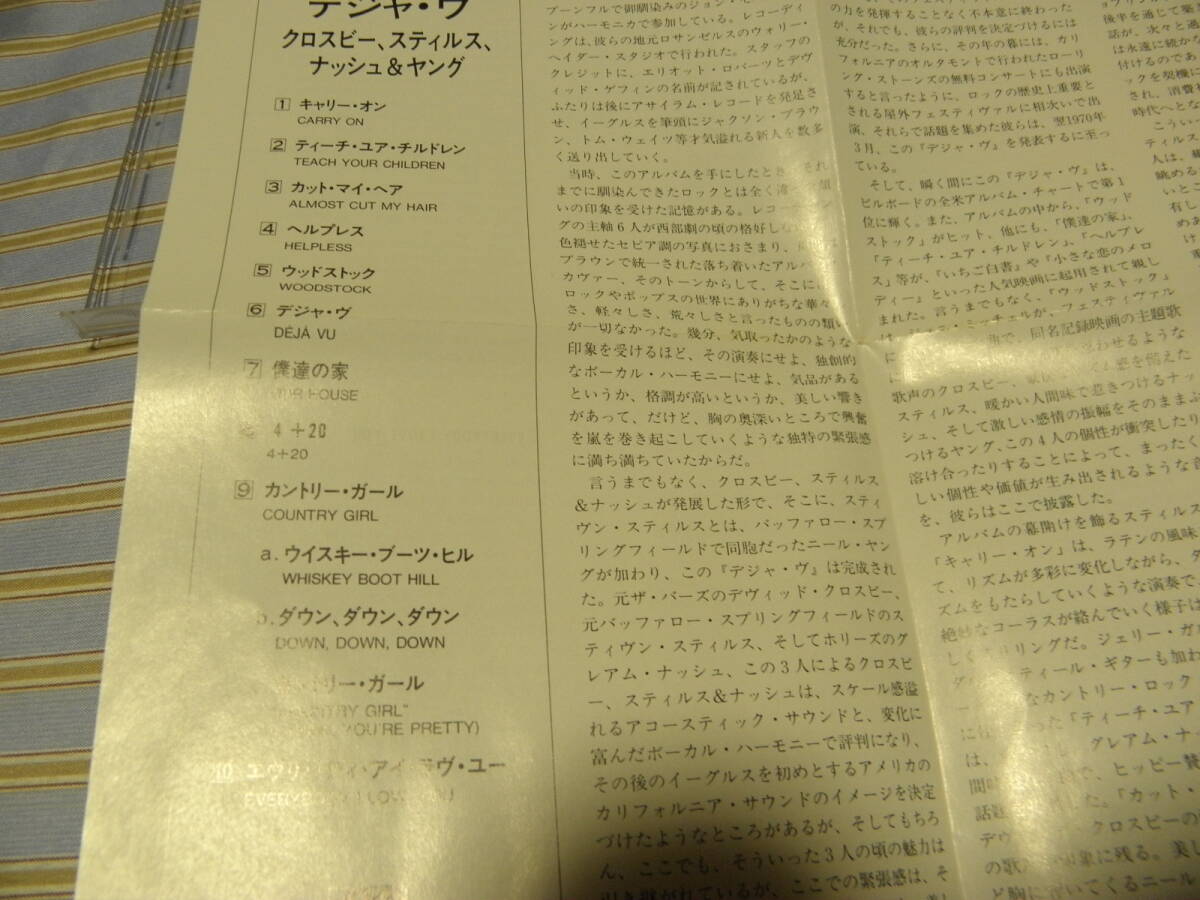 デジャ・ヴ
クロスビー、スティルス、
ナッシュ&ヤング
1 キャリー・オン
CARRY ON
2 ティーチ・ユア・チルドレン
TEACH YOUR CHILDREN
3 カット・マイ・ヘア
ALMOST CUT MY HAIR
4 ヘルプレス
HELPLESS
5 ウッドストック
WOODSTOCK
6 デジャ・ヴ
DÉJÀ VU
7 僕達の家
OUR HOUSE
4+20
4+20
9 カントリー・ガール
COUNTRY GIRL
a. ウイスキー・ブーツ・ヒル
WHISKEY BOOT HILL
b. ダウン、ダウン、ダウン
DOWN, DOWN, DOWN
リー・ガール
GIRL"
YOU'RE PRETTY)
10 ・アイ・ラヴ・ユー
プーンフルで御馴染みのジョン・
ンがハーモニカで参加している。レコーディ
ングは、彼らの地元ロサンゼルスのウォリー・
ヘイダー・スタジオで行われた。スタッフの
クレジットに、エリオット・ロバーツとデヴ
ィッド・ゲフィンの名前が記されているが、
ふたりは後にアサイラム・レコードを発足さ
せ、イーグルスを筆頭にジャクソン・ブラウ
ン、トム・ウェイツ等才気溢れる新人を数多
く送り出していく。
当時、このアルバムを手にしたとき、それ
までに馴染んできたロックとは全く違
いの印象を受けた記憶がある。レコー
グの主軸6人が西部劇の頃の格好し
色褪せたセピア調の写真におさまり、
ブラウンで統一された落ち着いたアルバ
カヴァー、そのトーンからして、そこに
ロックやポップスの世界にありがちな華々
さ、軽々しさ、荒々しさと言ったものの類い
が一切なかった。幾分、気取ったかのような
印象を受けるほど、その演奏にせよ、独創的
なボーカル・ハーモニーにせよ、気品がある
というか、格調が高いというか、美しい響き
があって、だけど、胸の奥深いところで興奮
を嵐を巻き起こしていくような独特の緊張感
に満ち満ちていたからだ。
言うまでもなく、クロスビー、スティルス
&ナッシュが発展した形で、そこに、スティ
ヴン・スティルスとは、バッファロー・スプ
リングフィールドで同胞だったニール・ヤン
グが加わり、この『デジャ・ヴ』は完成され
た。元ザ・バーズのデヴィッド・クロスビー、
元バッファロー・スプリングフィールドのス
ティヴン・スティルス、そしてホリーズのグ
レアム・ナッシュ、この3人によるクロスビ
ー、スティルス&ナッシュは、スケール感溢
れるアコースティック・サウンドと、変化に
富んだボーカル・ハーモニーで評判になり、
その後のイーグルスを初めとするアメリカの
カリフォルニア・サウンドのイメージを決定
づけたようなところがあるが、そしてもちろ
ん、ここでも、そういった3人の頃の魅力は
引き継がれているが、ここでの緊張感は、そ
の力を発揮することなく不本意に終わった
が、それでも、彼らの評判を決定づけるには
充分だった。さらに、その年の暮には、カリ
フォルニアのオルタモントで行われたローリ
ング・ストーンズの無料コンサートにも出演
すると言ったように、ロックの歴史上重要と
される屋外フェスティヴァルに相次いで出
演、それらで話題を集めた彼らは、翌1970年
3月、この『デジャ・ヴ』を発表するに至っ
ている。
そして、瞬く間にこの『デジャ・ヴ』は、
ビルボードの全米アルバム・チャートで第1
位に輝く。また、アルバムの中から、「ウッド
ストック」がヒット、他にも、「僕達の家」、
「ティーチ・ユア・チルドレン」、「ヘルプレ
ス」等が、『いちご白書』や『小さな恋のメロ
ディー』といった人気映画に起用されて親し
まれた。言うまでもなく、「ウッドストック」
は、 ・ミッチェルが、フェスティヴァル
で、同名記録映画の主題歌
わせるような
歌声のクロスビー、 感を備えた
スティルス、暖かい人間味で惹きつけるナッ
シュ、そして激しい感情の振幅をそのままぶ
つけるヤング、この4人の個性が衝突したり
溶け合ったりすることによって、まったく
しい個性や価値が生み出されるような音
を、彼らはここで披露した。
アルバムの幕開けを飾るスティルス
「キャリー・オン」は、ラテンの風味
て、リズムが多彩に変化しながら、ダ
ズムをもたらしていくような演奏で、
絶妙なコーラスが絡んでいく様子は
しくスリリングだ。ジェリー・ガル
ティール・ギターも加わ
なカントリー・ロック
った「ティーチ・ユア
は、 グレアム・ナッ
間味 で、ヒッピー賛
話題 した。「カット・
デヴ クロスビーの
の歌 印象に残る。美し
ど胸に響いてくるニール
ョプリン
後半を通じて築
話が、次々と過
は永遠に続かな
付けるのであ
ックを契機に
され、消費社
時代へとな
こうい
ティルス
人は、
眺める
いとこ
有し
け